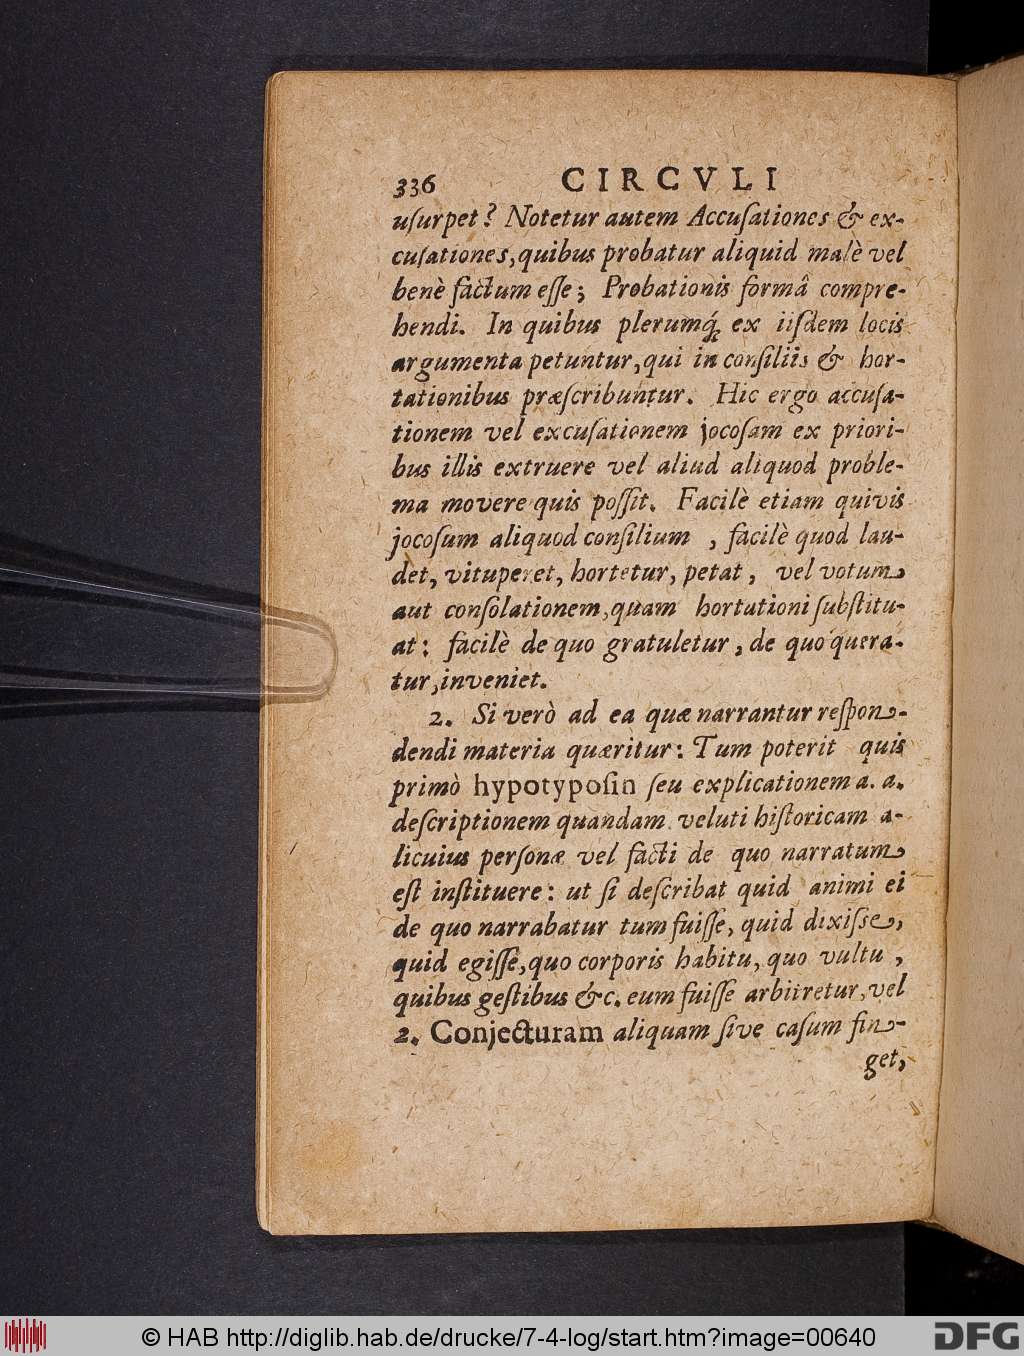 336 CIRCVLI
uſurpet? Notetur autem Accuſationes & ex-
cuſationes, quibus probatur aliquid malè vel
benè factum eſſe; Probationis formâ compre-
hendi. In quibus plerumq́; ex iiſdem locis
argumenta petuntur, qui in conſiliis & hor-
tationibus præſcribuntur. Hic ergo accuſa-
tionem vel excuſationem jocoſam ex priori-
bus illis extruere vel aliud aliquod proble-
ma movere quis poſſit. Facilè etiam quivis
jocoſum aliquod conſilium , facilè quod lau-
det, vituperet, hortetur, petat, vel votum
aut conſolationem, quam hortationi ſubſtitu-
at: facilè de quo gratuletur, de quo quera-
tur, inveniet.
2. Si verò ad ea quæ narrantur reſpon-
dendi materia quæritur: Tum poterit quis
primò hypotypoſin ſeu explicationem a. a.
deſcriptionem quandam veluti hiſtoricam a-
licuius perſonæ vel facti de quo narratum
eſt inſtituere: ut ſi deſcribat quid animi ei
de quo narrabatur tum fuiſſe, quid dixiſse,
quid egiſſe, quo corporis habitu, quo vultu,
quibus geſtibus &c. eum fuiſſe arbitretur, vel
2. Conjecturam aliquam ſive caſum fin-
get,
© HAB http://diglib.hab.de/drucke/7-4-log/start.htm?image=00640
DFG